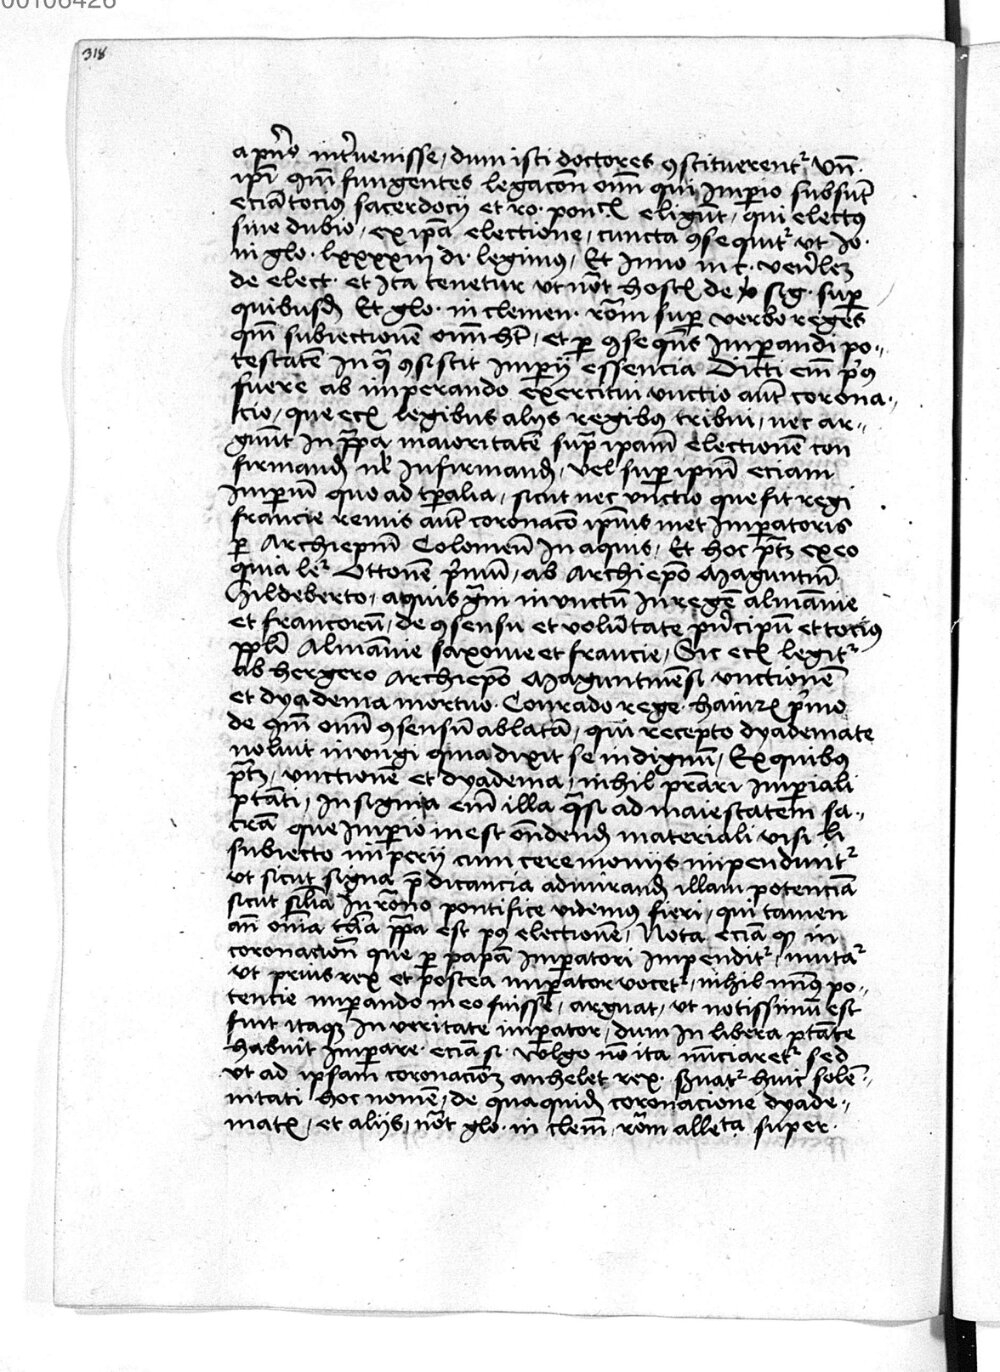 00106426
318
a pn̄o int̓uenisse / dum isti doctores ꝯstituerent᷑ vn̄
ip̄i qm̄ fungentes legacōn om̄ qui Imꝑio subsūt
eciā tocius sacerdocij et ro. pon. eligūt / qui electus
sine dubio / ex ip̄a electione / cuncta ꝯsequit᷑ vt Io.
in glo. lxxxxiij di. legimus / Et Inno in c. ven̄lez
de elect. et Ita tenetur vt not̄ host. de sig. suꝑ
quibusd̄ Et glo. in clemen. rōm suꝑ verbo reges
qm̄ subiectionē om̄ hn̄t / et ꝑ ꝯsequēs Imꝑandi po-
testatē In qua ꝯsistit Imꝑij essencia Dicti em̄ pͥus
fuere ab imperando exercitui vnctio aūt corona-
cio / que ecͣ legibus alijs regibus tribui / nec ar-
guūt In pꝑa maioritatē supra ipam electionē con
firmand̄ ul̓ Infirmand̄ / vel suꝑ ipm̄ eciam
Imꝑiū quo ad tꝑalia / sicut nec vnctio que fit regi
francie remis aūt coronacō ipius met Imꝑatoris
ꝑ Archiepm̄ Colonieñ In aquis / Et hoc ptz ex eo
quia let᷑ Ottonē pͥmū / ab Archiepō Maguntin̄
Hildeberto / aquisgrm̄ invnctū In regē almānie
et francorū / de ꝯsensu et volūtate pͥncipū et tocius
ppl̓i Almānie saxonie et francie / Sic ecͣ legit᷑
ab hergero Archiepō Maguntinensi vnctionē
et dyadema mortuo Conrado rege hainrͨ pͥmo
de qm̄ om̄ ꝯsensū ablatā / qui recepto dyademate
noluit invngi quia dixit se indignū / Ex quibus
ptz / vnctionē et dyadema / nihil prāri Imꝑiali
ptāti / Insignia em̄ illa quasi ad maiestatem sa-
crā que Imꝑio inest on̄dend̄ materiali visi li
subiecto imperij cum ceremonijs impendunt᷑
vt sicut signa p̄dicancia admirand̄ illam potenciā
sicut sil̓ia In rōno pontifice videmus fieri / qui tamen
an̄ om̄ia tal̓ia ppa est pus electionē / Nota eciā ꝙ in
coronacion̄ que ꝑ papā Imꝑatori Impendit᷑ / mutat᷑
vt prius rex et postea imꝑator vocet᷑ / nihil min̓us po-
tencie imperando in eo fuisse / arguat / vt notissimū est
fuit itaqꝫ In veritate imꝑator / dum In libera ptāte
habuit Imꝑare eciā si vulgo nō ita nūciaret᷑ sed
vt ad ipsam coronacionē anhelet rex. suat᷑ huic solē-
nitati hoc nomē / de qua quid̄ coronacione dyade-
matͨ / et alijs / not̄ glo. in clem̄ / rōm all̓eta super